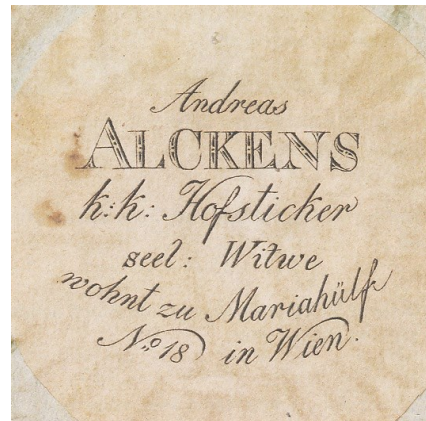 Andreas
ALCKENS
k: k: Hofsticker
seel: Witwe
wohnt zu Mariahülf
No: 18 in Wien.